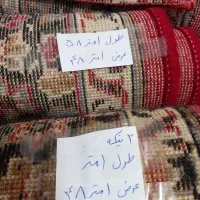 طول ۱متر ۵۸
عرض ۱متر ۴۸
۳ تیکه
طول ۱متر
عرض ۱متر ۴۸